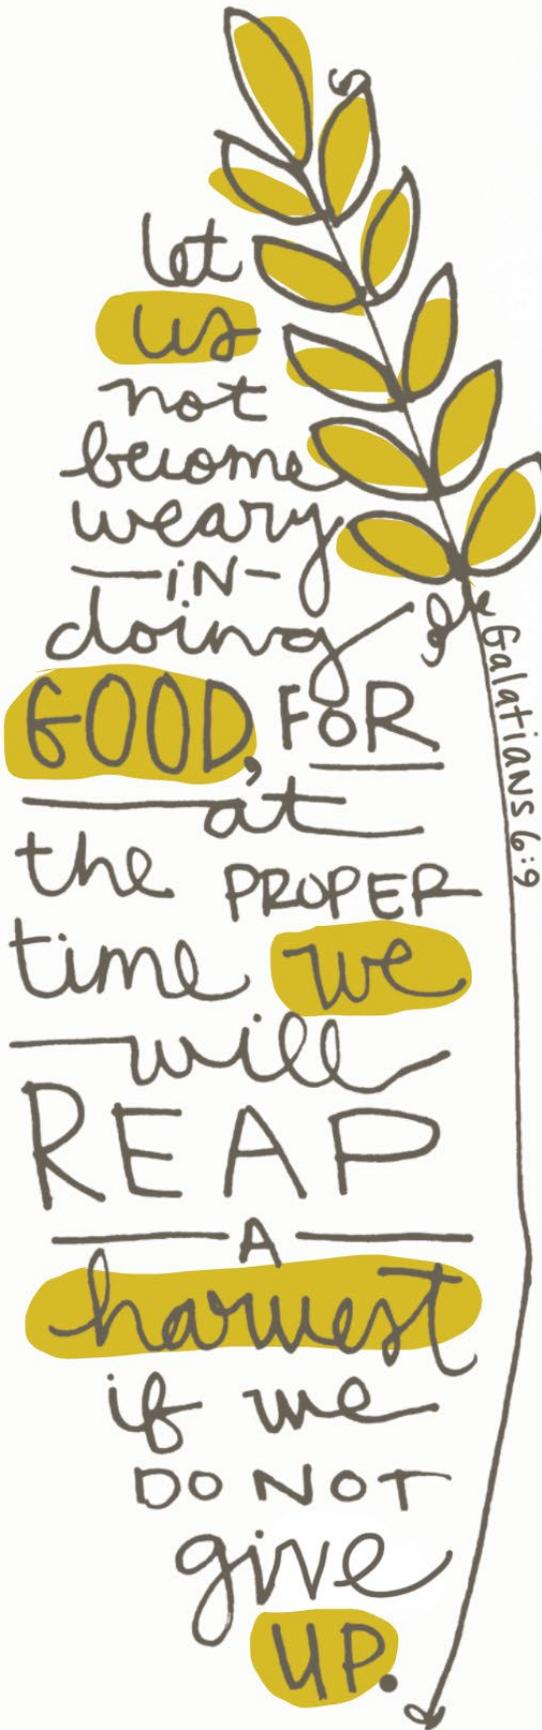 let
us
not
become
weary
-iN-
doing
GOOD, FOR
at
the PROPER
time we
will
REAP
A
harvest
if we
DO NOT
give
UP.
Galatians 6:9